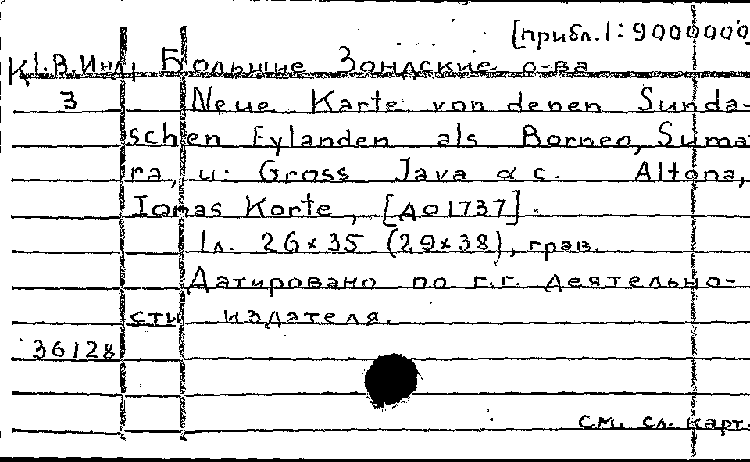 [прибл. 1:9000000
К1.В.Инд. Большие Зондские о-ва
3 Neue Karte von denen Sunda-
schen Eylanden als Borneo, Suma
ra, u: Gross Java &c. Altona,
Ionas Korte, [до 1737].
1л. 26×35 (29×38), грав.
Датировано по г.г. деятельно-
сти издателя.
36128
см. сл. карт.